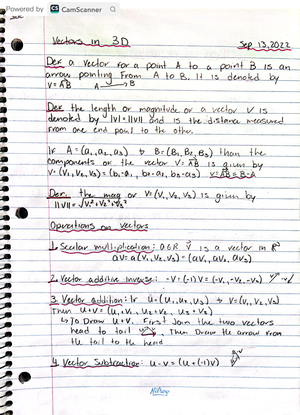 Powered by CS CamScanner
Vectors in 3D Sep 13, 2022
Def a vector for a point A to a point B is an
arrow pointing from A to B. It is denoted by
V = AB A → B
Def the length or magnitude or a vector V is
denoted by |V| = ||V|| and is the distance measured
from one end point to the other.
If A = (a₁, a₂, a₃) & B = (B₁, B₂, B₃) than the
components or the vector V = AB is given by
V = (V₁, V₂, V₃) = (b₁-a₁, b₂-a₂, b₃-a₃) V = AB = B-A
Def: the mag or V = (V₁, V₂, V₃) is given by
||V|| = √V₁² + V₂² + V₃²
Operations on Vectors
1. Scalar multiplication: a∈R V is a vector in R³
aV = a(V₁, V₂, V₃) = (aV₁, aV₂, aV₃)
2. Vector additive inverse: -V = (-1)V = (-V₁, -V₂, -V₃)
3. Vector addition: Ir U = (U₁, U₂, U₃) & V = (V₁, V₂, V₃)
Then U+V = (U₁+V₁, U₂+V₂, U₃+V₃)
↳ To Draw U+V, First Join the two vectors
head to tail, Then Draw the arrow from
the tail to the head
4. Vector Subtraction: U-V = (U+(-1)V)
Hilroy